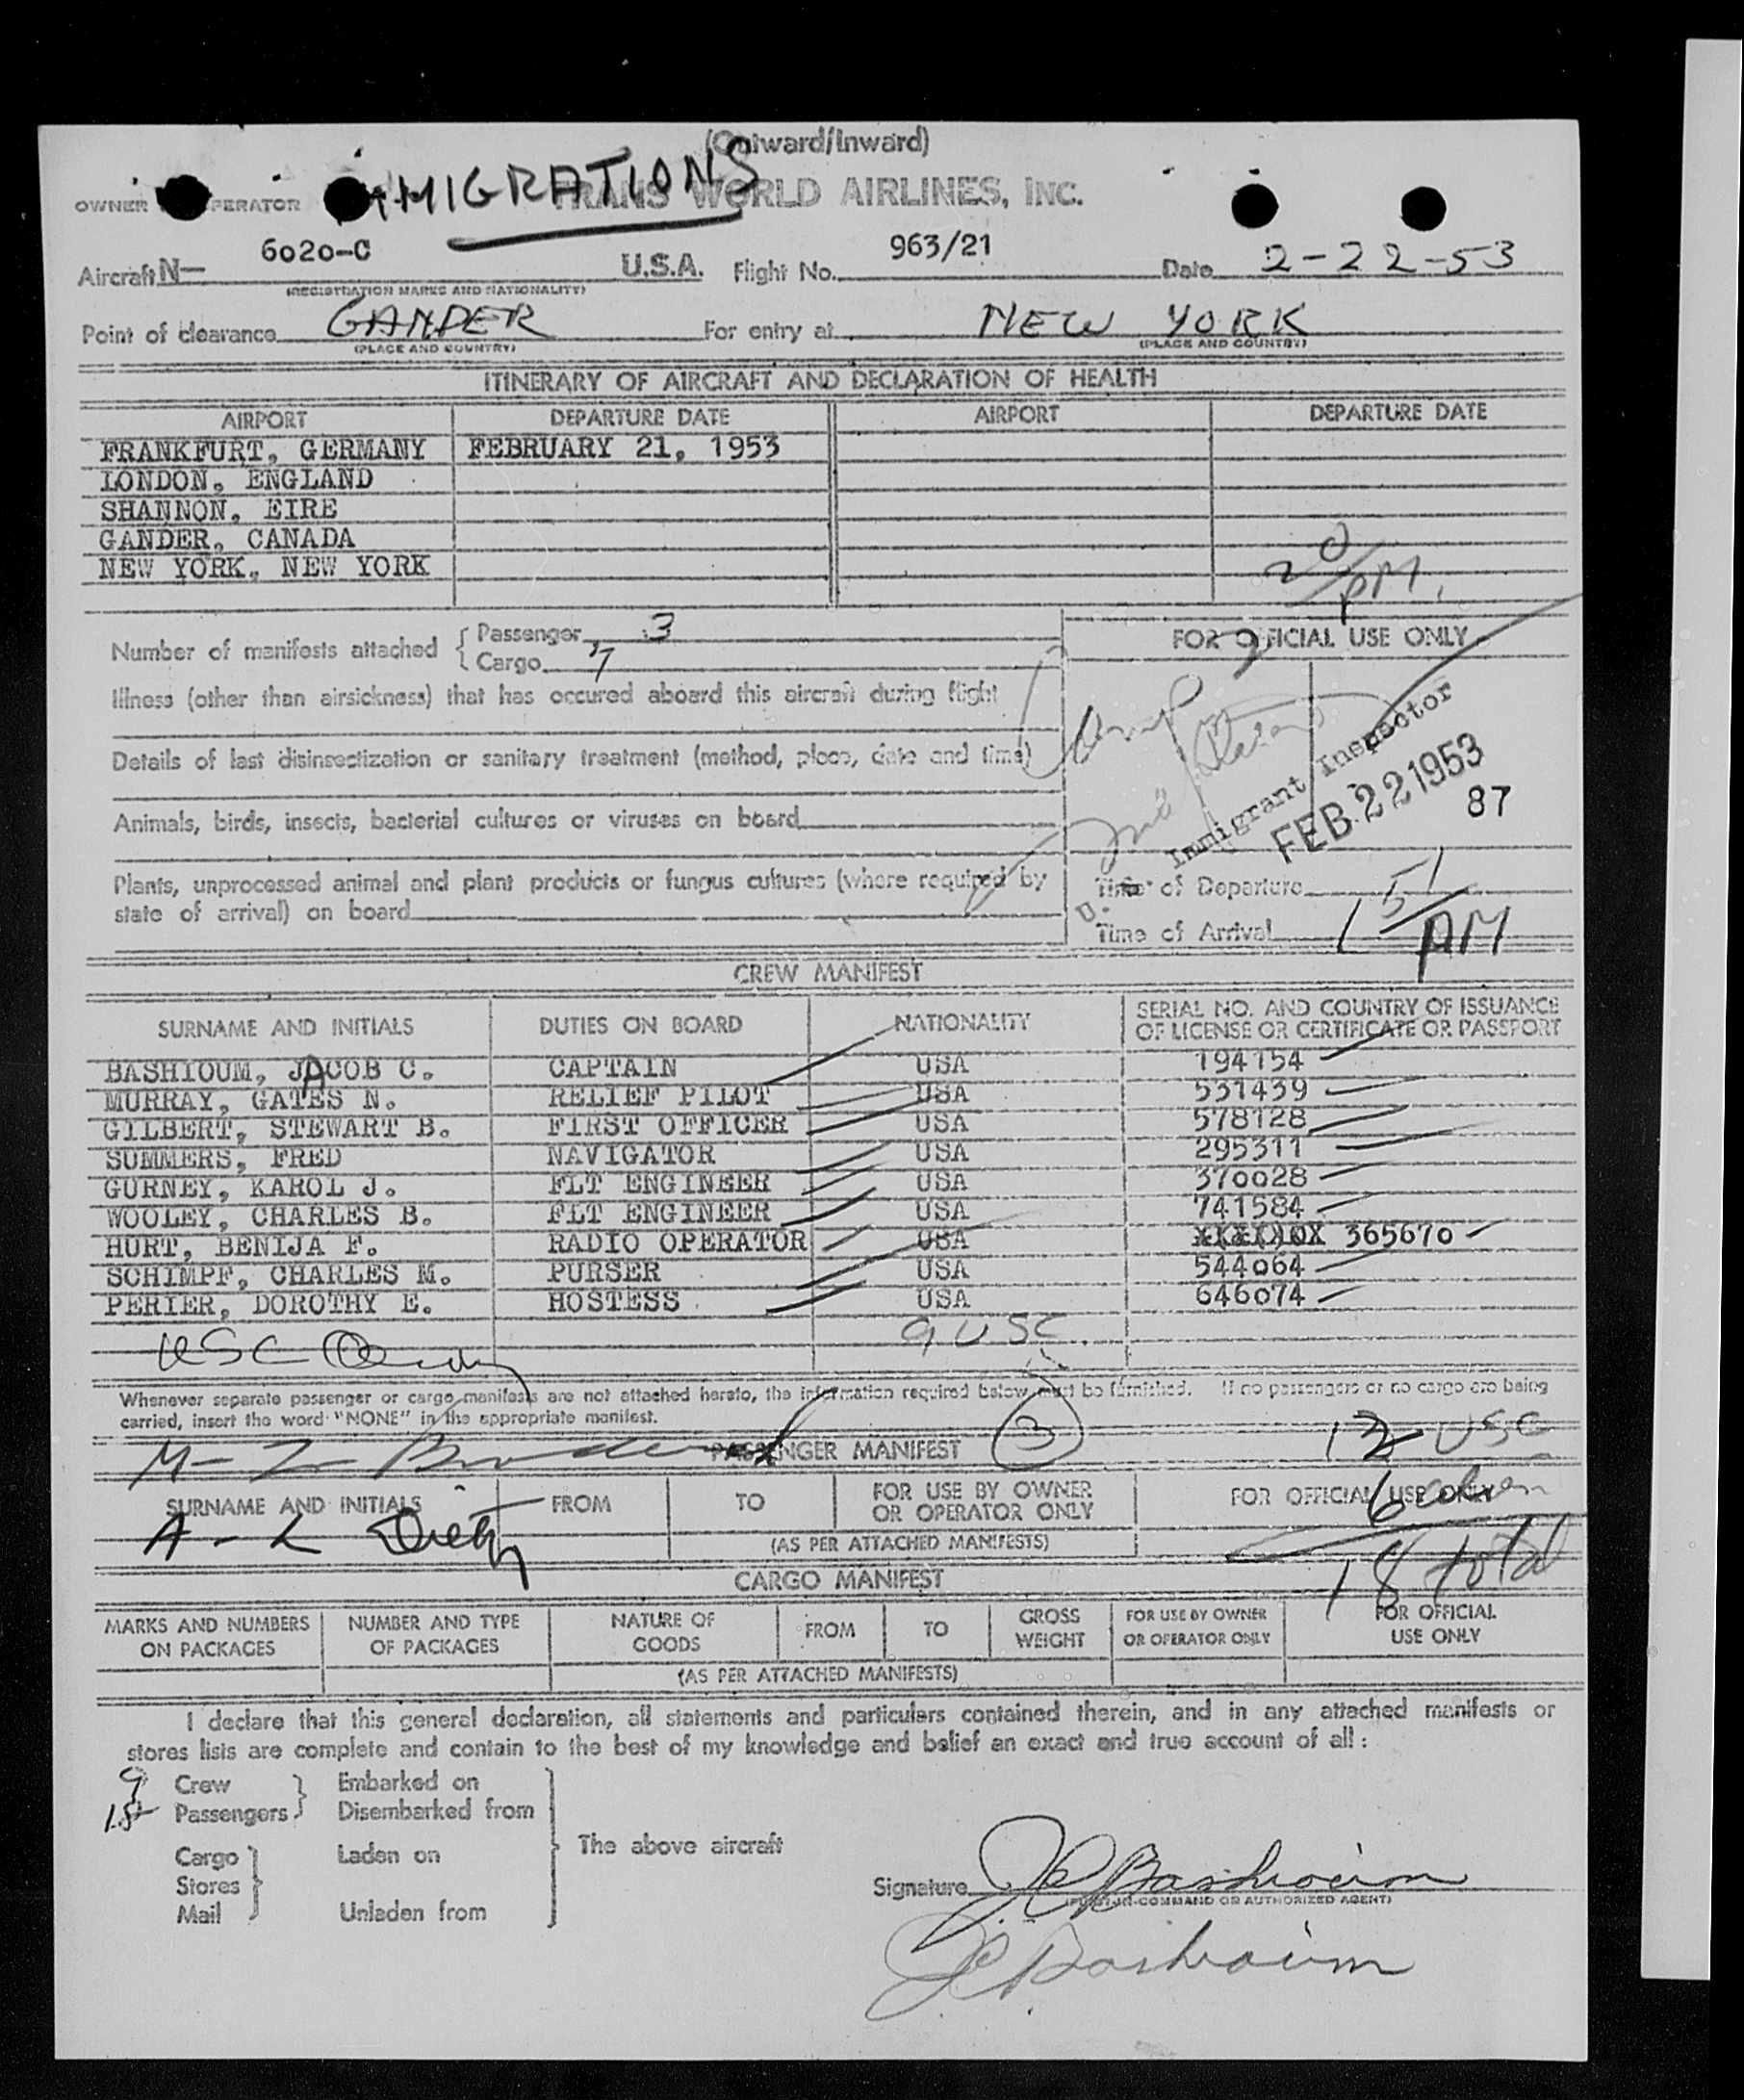 (Outward/Inward)
IMMIGRATIONS
OWNER OPERATOR TRANS WORLD AIRLINES, INC.
Aircraft N— 6020-C U.S.A. Flight No. 963/21 Date 2-22-53
(REGISTRATION MARKS AND NATIONALITY)
Point of clearance GANDER For entry at NEW YORK
(PLACE AND COUNTRY) (PLACE AND COUNTRY)
ITINERARY OF AIRCRAFT AND DECLARATION OF HEALTH
AIRPORT DEPARTURE DATE AIRPORT DEPARTURE DATE
FRANKFURT, GERMANY FEBRUARY 21, 1953
LONDON, ENGLAND
SHANNON, EIRE
GANDER, CANADA
NEW YORK, NEW YORK
20 PM.
Number of manifests attached { Passenger 3
Cargo 7
FOR OFFICIAL USE ONLY
Illness (other than airsickness) that has occured aboard this aircraft during flight
Details of last disinsectization or sanitary treatment (method, place, date and time)
Immigrant Inspector
FEB 22 1953
87
Animals, birds, insects, bacterial cultures or viruses on board
Plants, unprocessed animal and plant products or fungus cultures (where required by
state of arrival) on board
Time of Departure
Time of Arrival 1 51 AM
CREW MANIFEST
SURNAME AND INITIALS DUTIES ON BOARD NATIONALITY SERIAL NO. AND COUNTRY OF ISSUANCE
OF LICENSE OR CERTIFICATE OR PASSPORT
BASHIOUM, JACOB C. CAPTAIN USA 194154
MURRAY, GATES N. RELIEF PILOT USA 531439
GILBERT, STEWART B. FIRST OFFICER USA 578128
SUMMERS, FRED NAVIGATOR USA 295311
GURNEY, KAROL J. FLT ENGINEER USA 370028
WOOLEY, CHARLES B. FLT ENGINEER USA 741584
HURT, BENIJA F. RADIO OPERATOR USA 365670
SCHIMPF, CHARLES M. PURSER USA 544064
PERIER, DOROTHY E. HOSTESS USA 646074
USC 9 USC
Whenever separate passenger or cargo manifests are not attached hereto, the information required below must be furnished. If no passengers or no cargo are being
carried, insert the word "NONE" in the appropriate manifest.
PASSENGER MANIFEST 3 12 USC
SURNAME AND INITIALS FROM TO FOR USE BY OWNER
OR OPERATOR ONLY FOR OFFICIAL USE ONLY
6 alien
(AS PER ATTACHED MANIFESTS)
18 total
CARGO MANIFEST
MARKS AND NUMBERS
ON PACKAGES NUMBER AND TYPE
OF PACKAGES NATURE OF
GOODS FROM TO GROSS
WEIGHT FOR USE BY OWNER
OR OPERATOR ONLY FOR OFFICIAL
USE ONLY
(AS PER ATTACHED MANIFESTS)
I declare that this general declaration, all statements and particulars contained therein, and in any attached manifests or
stores lists are complete and contain to the best of my knowledge and belief an exact and true account of all:
9 Crew Embarked on
18 Passengers Disembarked from
The above aircraft
Cargo Laden on
Stores
Mail Unladen from
Signature JC Bashioum
(PILOT-IN-COMMAND OR AUTHORIZED AGENT)
JC Bashioum